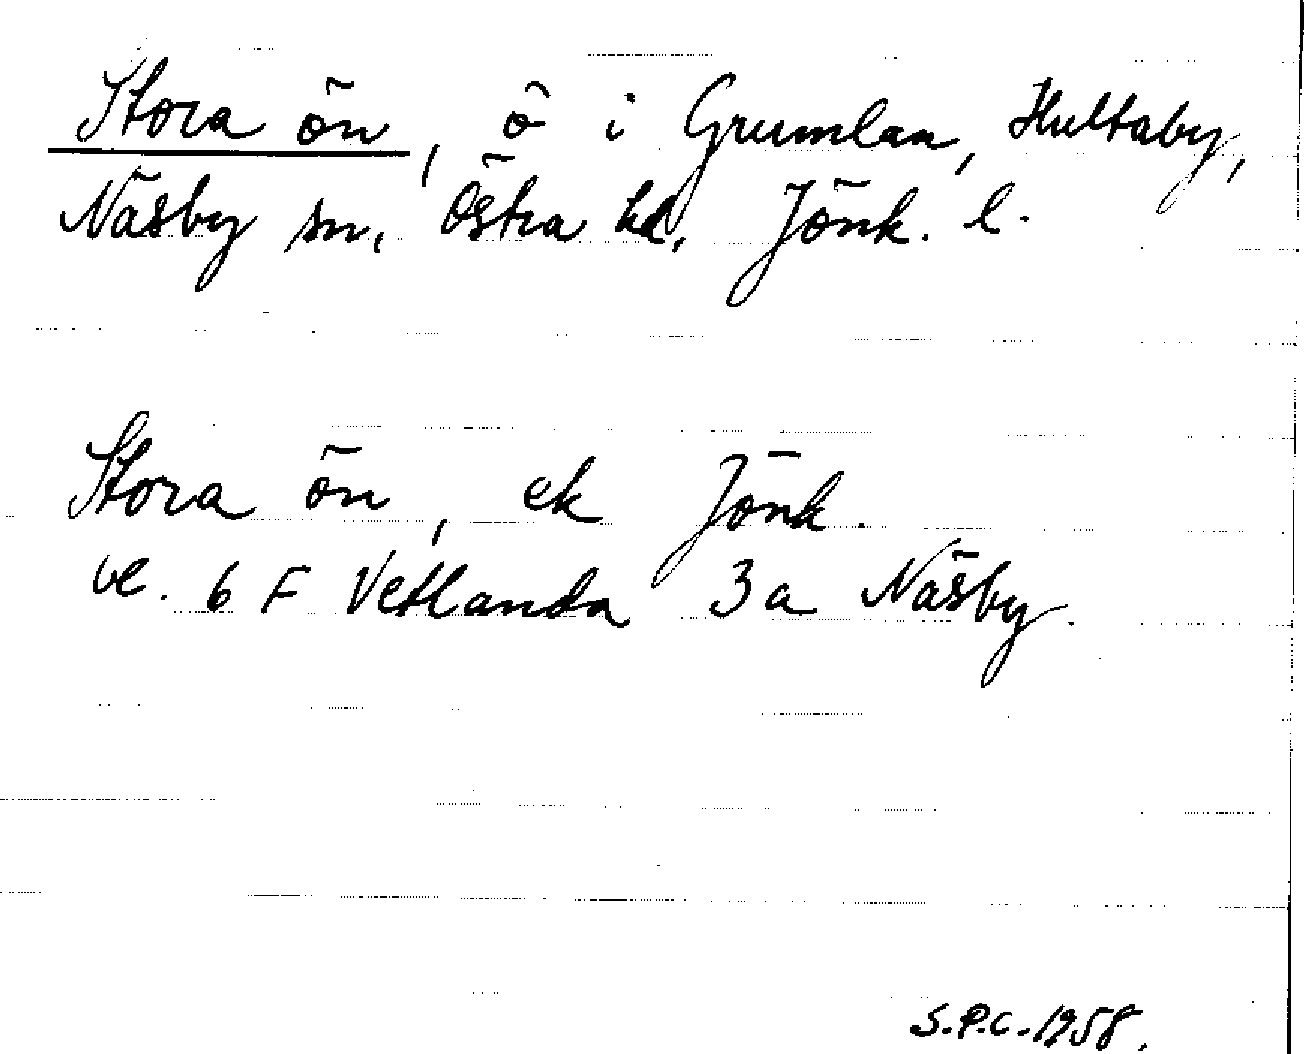 Stora ön, ö i Grumlan, Hultaby,
Näsby sn, Östra hd, Jönk. l.
Stora ön, ek Jönk.
ve. 6 F Vetlanda 3a Näsby.
S.P.C. 1958.